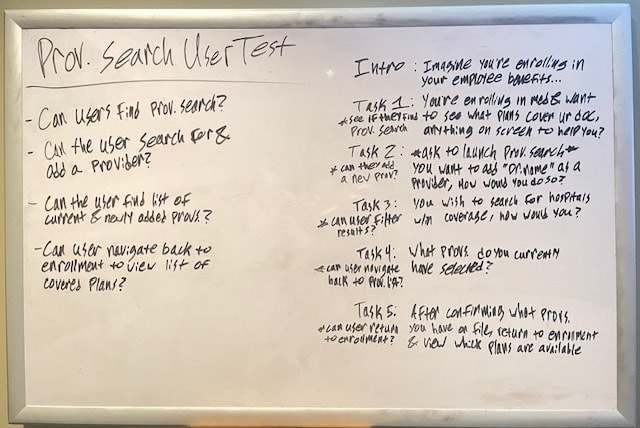 Prov. Search User Test
- Can Users find Prov. search?
- Can the user search for &
add a Provider?
- Can the user find list of
current & newly added Provs.?
- Can user navigate back to
enrollment to view list of
covered Plans?
Intro: Imagine you're enrolling in
your employee benefits...
Task 1: You're enrolling in med & want
*see if they find to see what plans cover ur doc,
Prov. search anything on screen to help you?
Task 2: *ask to launch Prov. search*
*can they add You want to add "Dr. name" as a
a new prov? Provider, How would you do so?
Task 3: You wish to search for hospitals
*can user filter w/in coverage, how would you?
results?
Task 4: What Provs. do you currently
*can user navigate have selected?
back to Prov. list?
Task 5: After confirming what Provs.
*can user return you have on file, return to enrollment
to enrollment? & view which plans are available